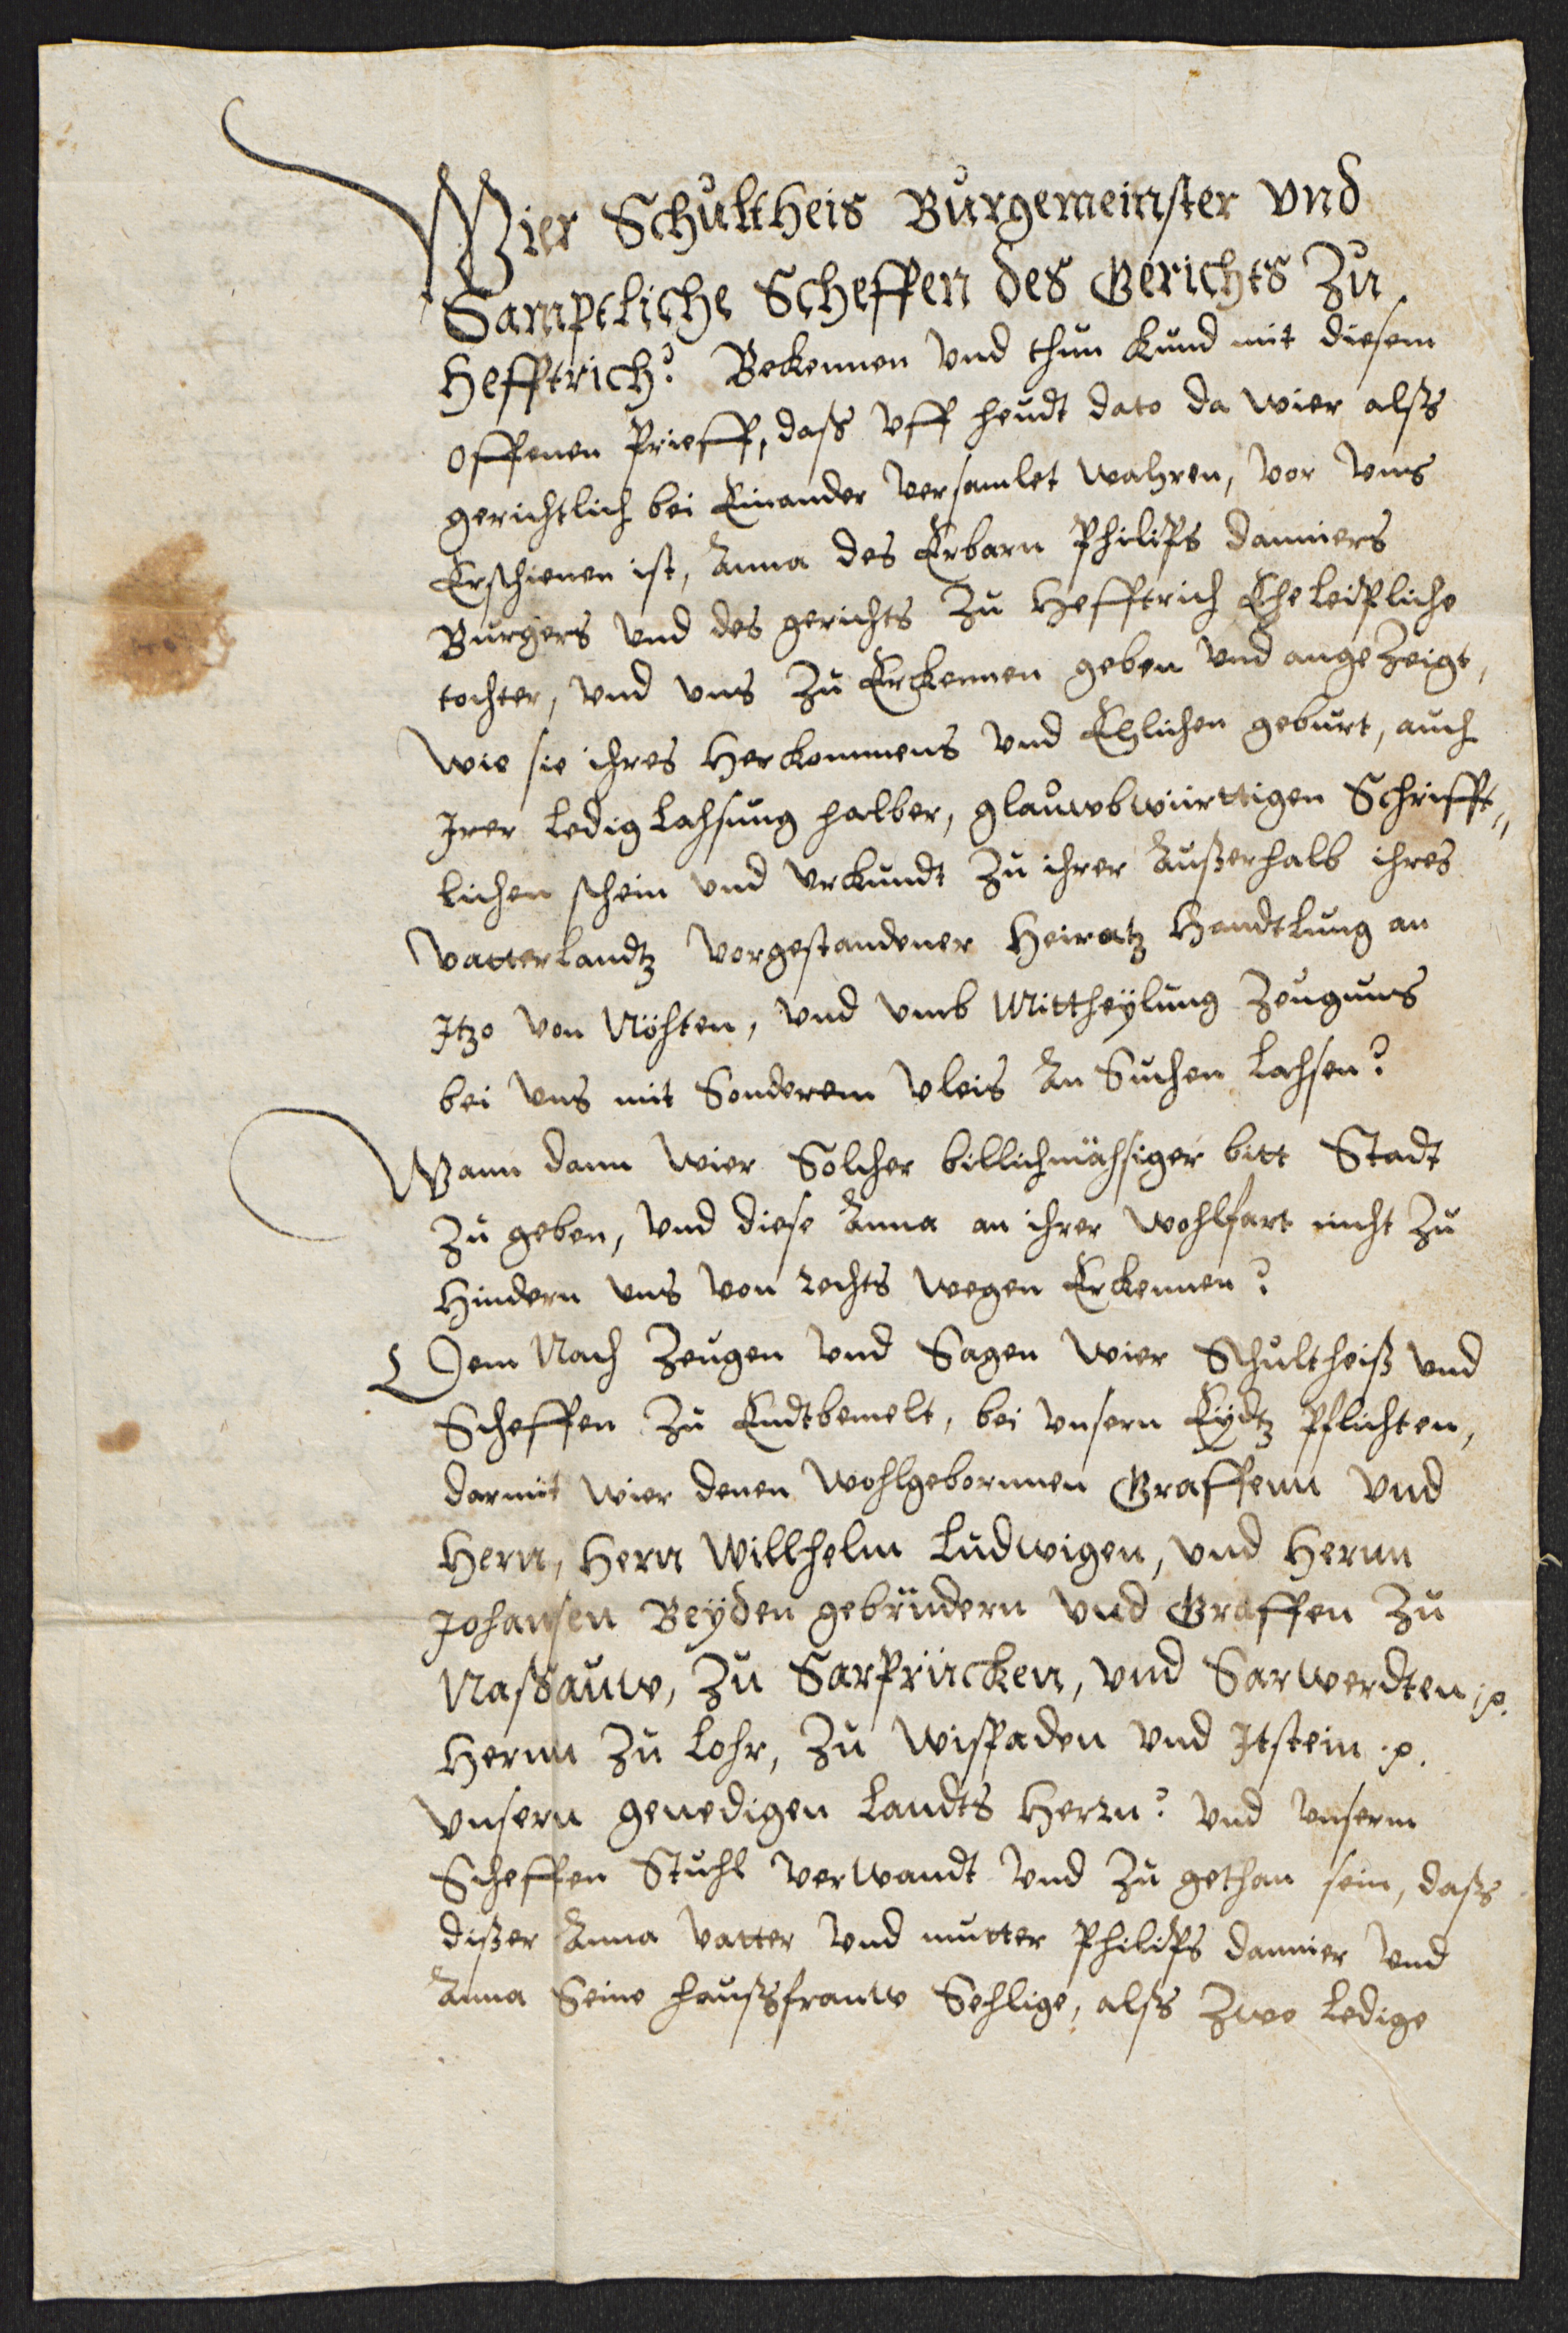 Wier Schultheis Burgemeinster vnd
Samptliche Scheffen des Gerichts Zu
Hefftrich? Bekennen vnd thun kund mit diesem
offenen Prieff, dass vff heudt dato da wier alss
gerichtlich bei Einander versamlet wahren, vor vns
Erschienen ist, Anna des Erbarn Philips danniers
Burgers vnd des gerichts Zu Hefftrich Eheleipliche
tochter, vnd vns Zu Erkennen geben vnd angezeigt,
wie sie ihres Herkommens vnd Ehlichen geburt, auch
Irer Ledig Lahsung halber, glauwbwürttigen Schrifft„
lichen schein vnd vrkundt Zu ihrer Außerhalb ihres
vatterlandtz vorgestandener Heiratz Handtlung an
Itzo von Nöhten, vnd vmb Mittheylung Zeugnus
bei vns mit Sonderem vleis An Suchen Lahsen?
Wann dann wier Solcher billichmähsiger bitt Stadt
Zu geben, vnd diese Anna an ihrer wohlfart nicht Zu
Hindern vns von rechts wegen Erkennen?
Dem Nach Zeugen vnd Sagen wier Schultheiß vnd
Scheffen Zu Endtbemelt, bei vnsern Eydtz Pflichten,
darmit wier denen wohlgebornnen Graffenn vnd
Hern, Hern Willhelm Ludwigen, vnd Hernn
Johansen Beyden gebrüdern vnd Graffen Zu
Naßauw, Zu Sarprücken, vnd Sarwerdten, p.
Hernn Zu Lohr, Zu Wispaden vnd Itstein p.
vnsern genedigen Landts Herrn? vnd vnserm
Scheffen Stuhl verwandt vnd Zu gethan sein, dass
dißer Anna vatter vnd mutter Philips dannier vnd
Anna Seine haussfrauw Sehlige, alss Zwo Ledige